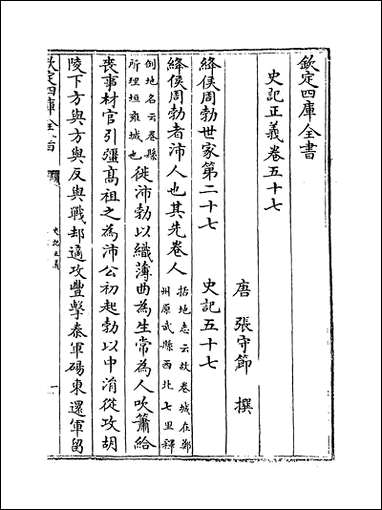 欽定四庫全書
史記正義卷五十七
唐 張守節 撰
絳侯周勃世家第二十七 史記五十七
絳侯周勃者沛人也其先卷人括地志云故卷城在鄭州原武縣西北七里釋
例地名云卷縣所理垣雍城也徙沛勃以織薄曲為生常為人吹簫給
喪事材官引彊髙祖之為沛公初起勃以中涓從攻胡
陵下方與方與反與戰却適攻豐擊秦軍碭東還軍留
欽定四庫全書
史記正義
一